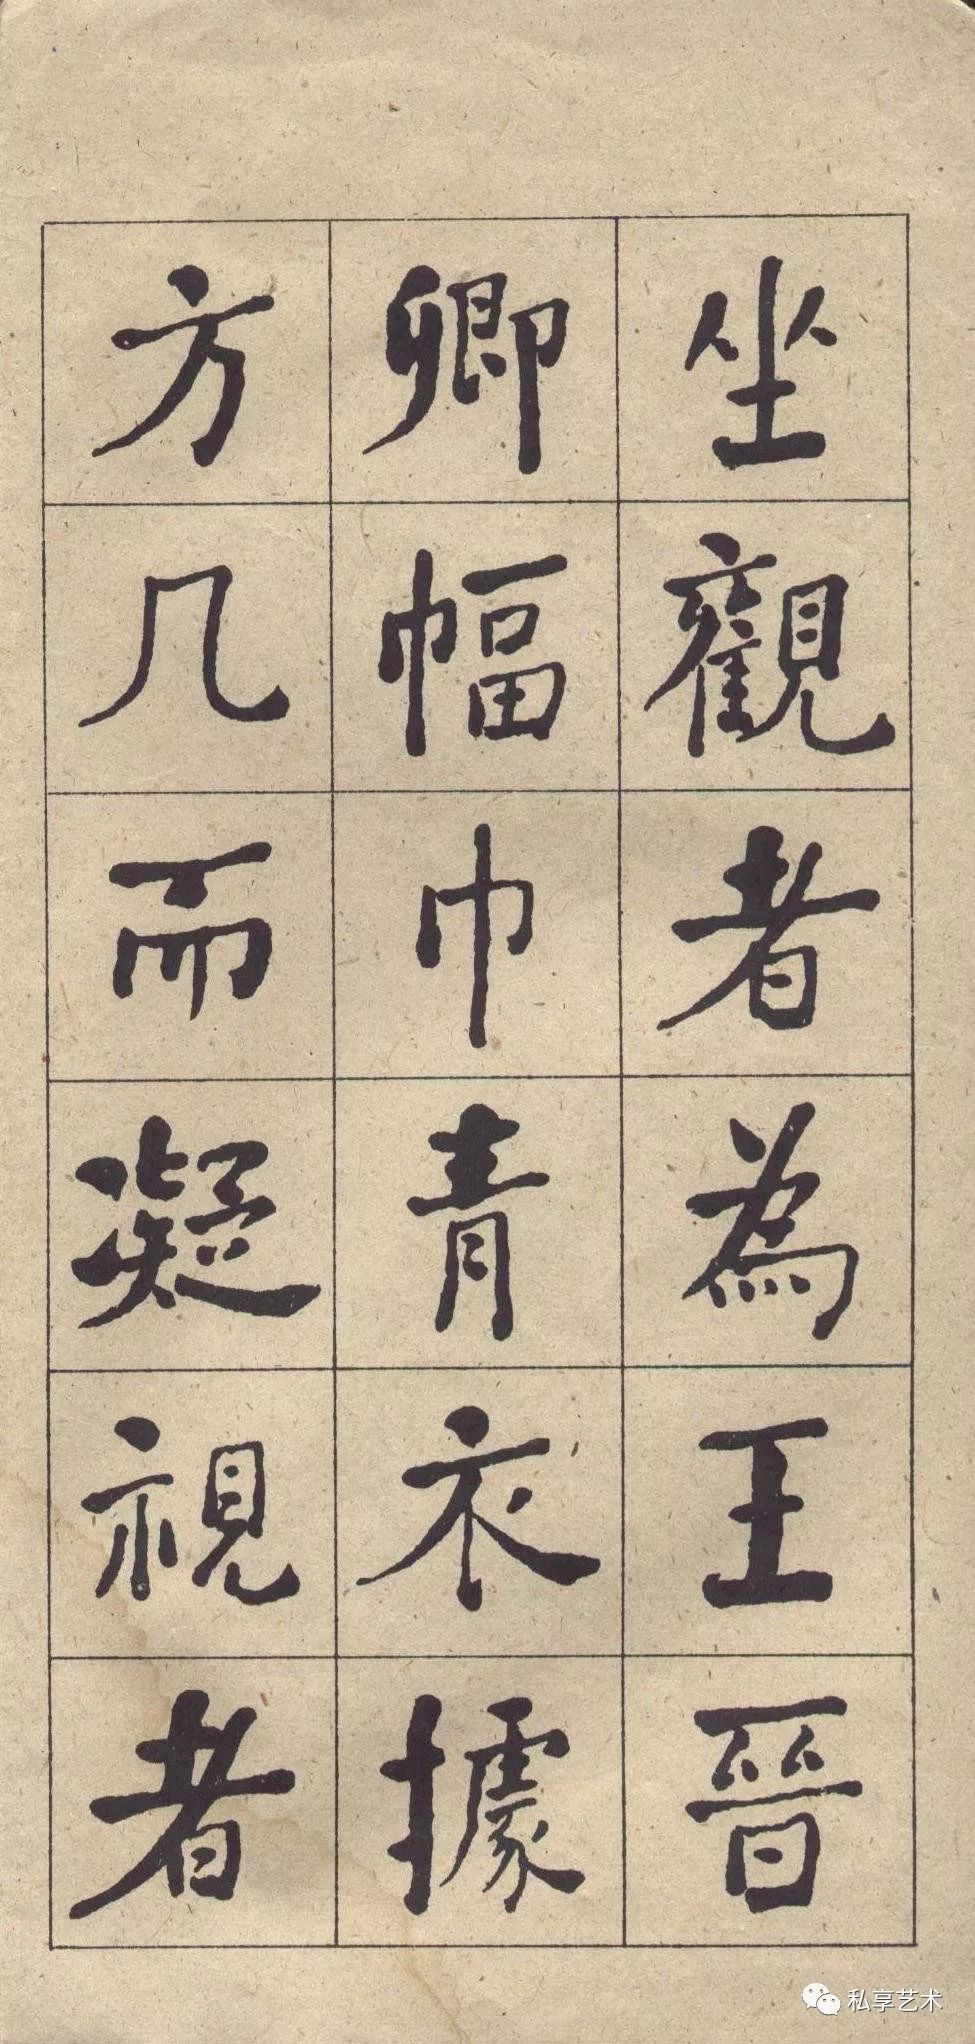 坐觀者為王晉
卿幅巾青衣據
方几而凝視者
私享艺术